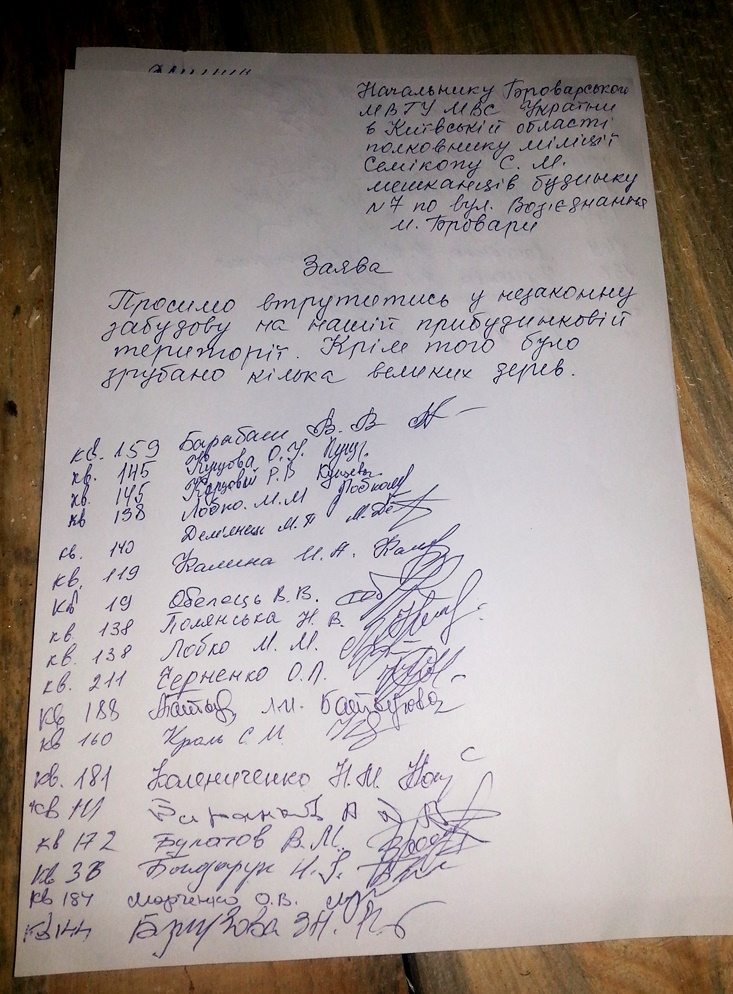 Начальнику Броварського
МВГУ МВС України
в Київській області
полковнику міліції
Семікопу С. М.
мешканців будинку
N7 по вул. Возз'єднання
м. Бровари
Заява
Просимо втрутитись у незаконну
забудову на нашій прибудинковій
території. Крім того було
зрубано кілька великих дерев.
кв. 159 Барабаш В. В
кв. 145 Куцова О. У.
кв. 145 Р. В
кв 138 Лобко. М. М
кв. 140 Дем'янець М. П
кв. 119 Калина И. А.
кв 19 Обелець В. В.
кв. 138 Полянська Н. В.
кв. 138 Лобко М. М.
кв. 211 Черненко О. П.
кв 188
кв 160 Краль С. М.
кв. 181 Калениченко Н. М.
кв
кв 172 Булатов В. М.
кв 38 Бондарук Н. Г.
кв 184 Марченко О. В.
кв 144